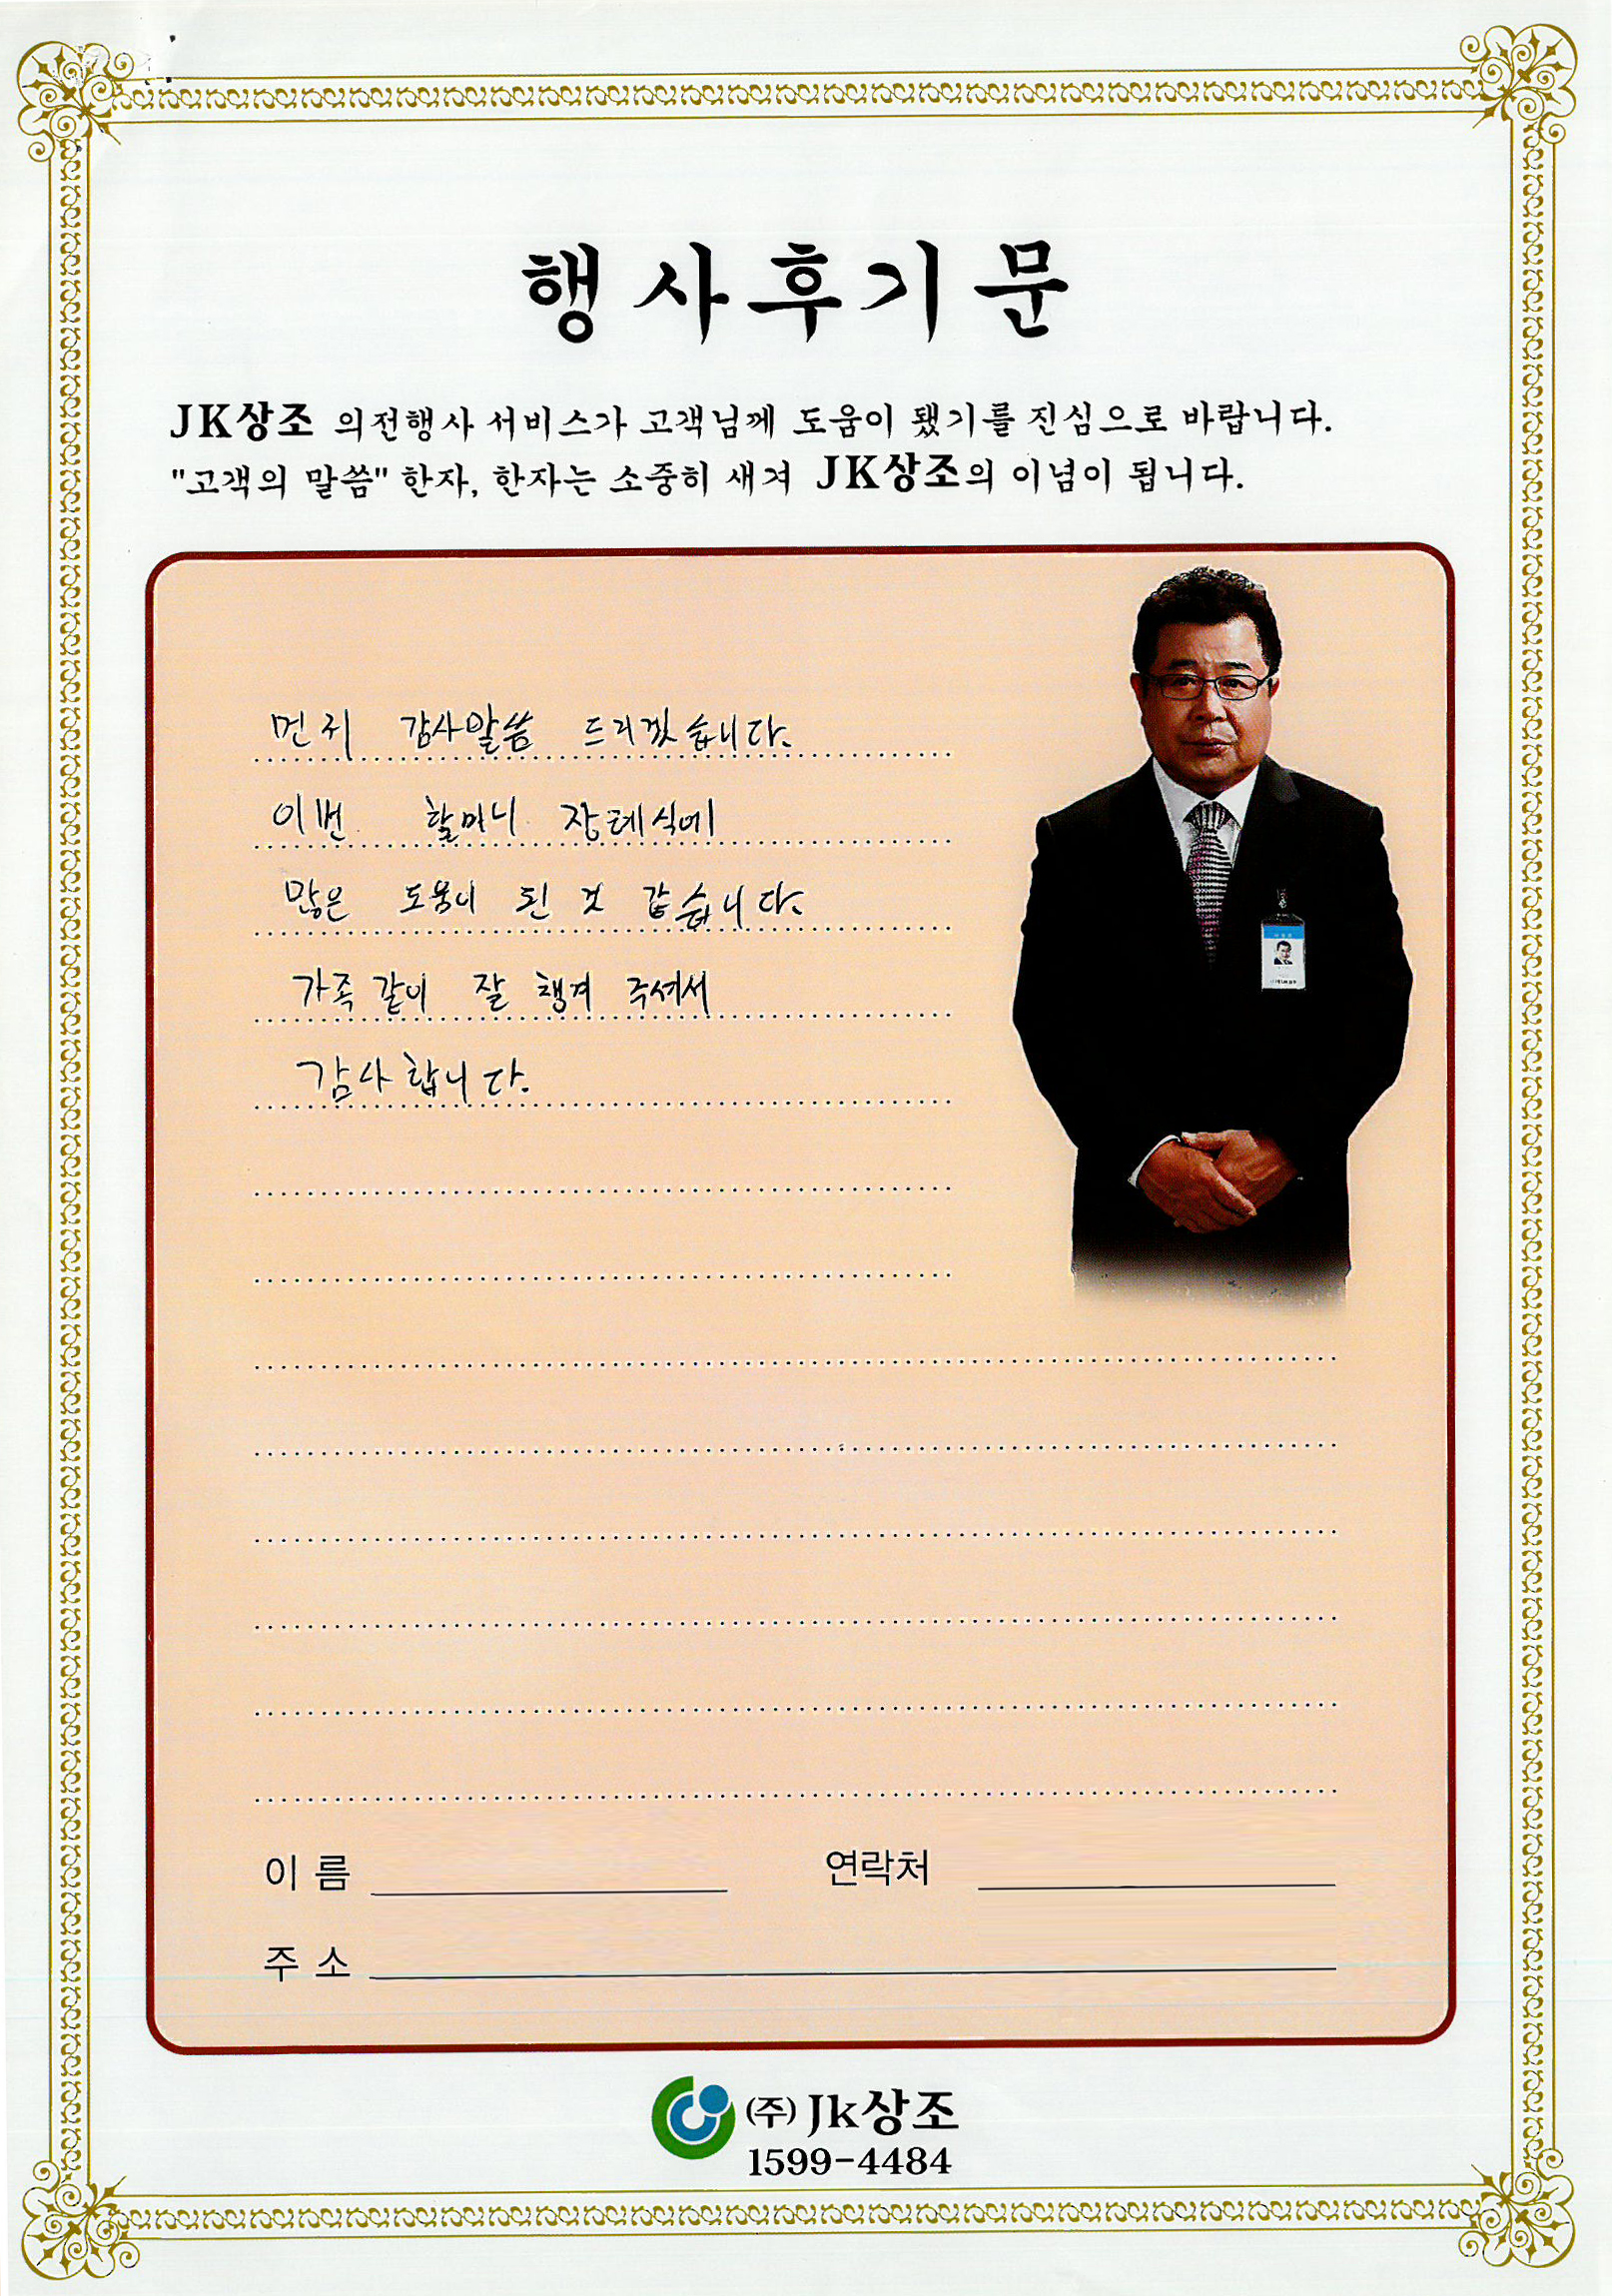 행사후기문
JK상조 의전행사 서비스가 고객님께 도움이 됐기를 진심으로 바랍니다.
"고객의 말씀" 한자, 한자는 소중히 새겨 JK상조의 이념이 됩니다.
먼저 감사말씀 드리겠습니다.
이번 할머니 장례식에
많은 도움이 된 것 같습니다.
가족같이 잘 챙겨 주셔서
감사합니다.
이 름 연락처
주 소
(주) Jk상조
1599-4484